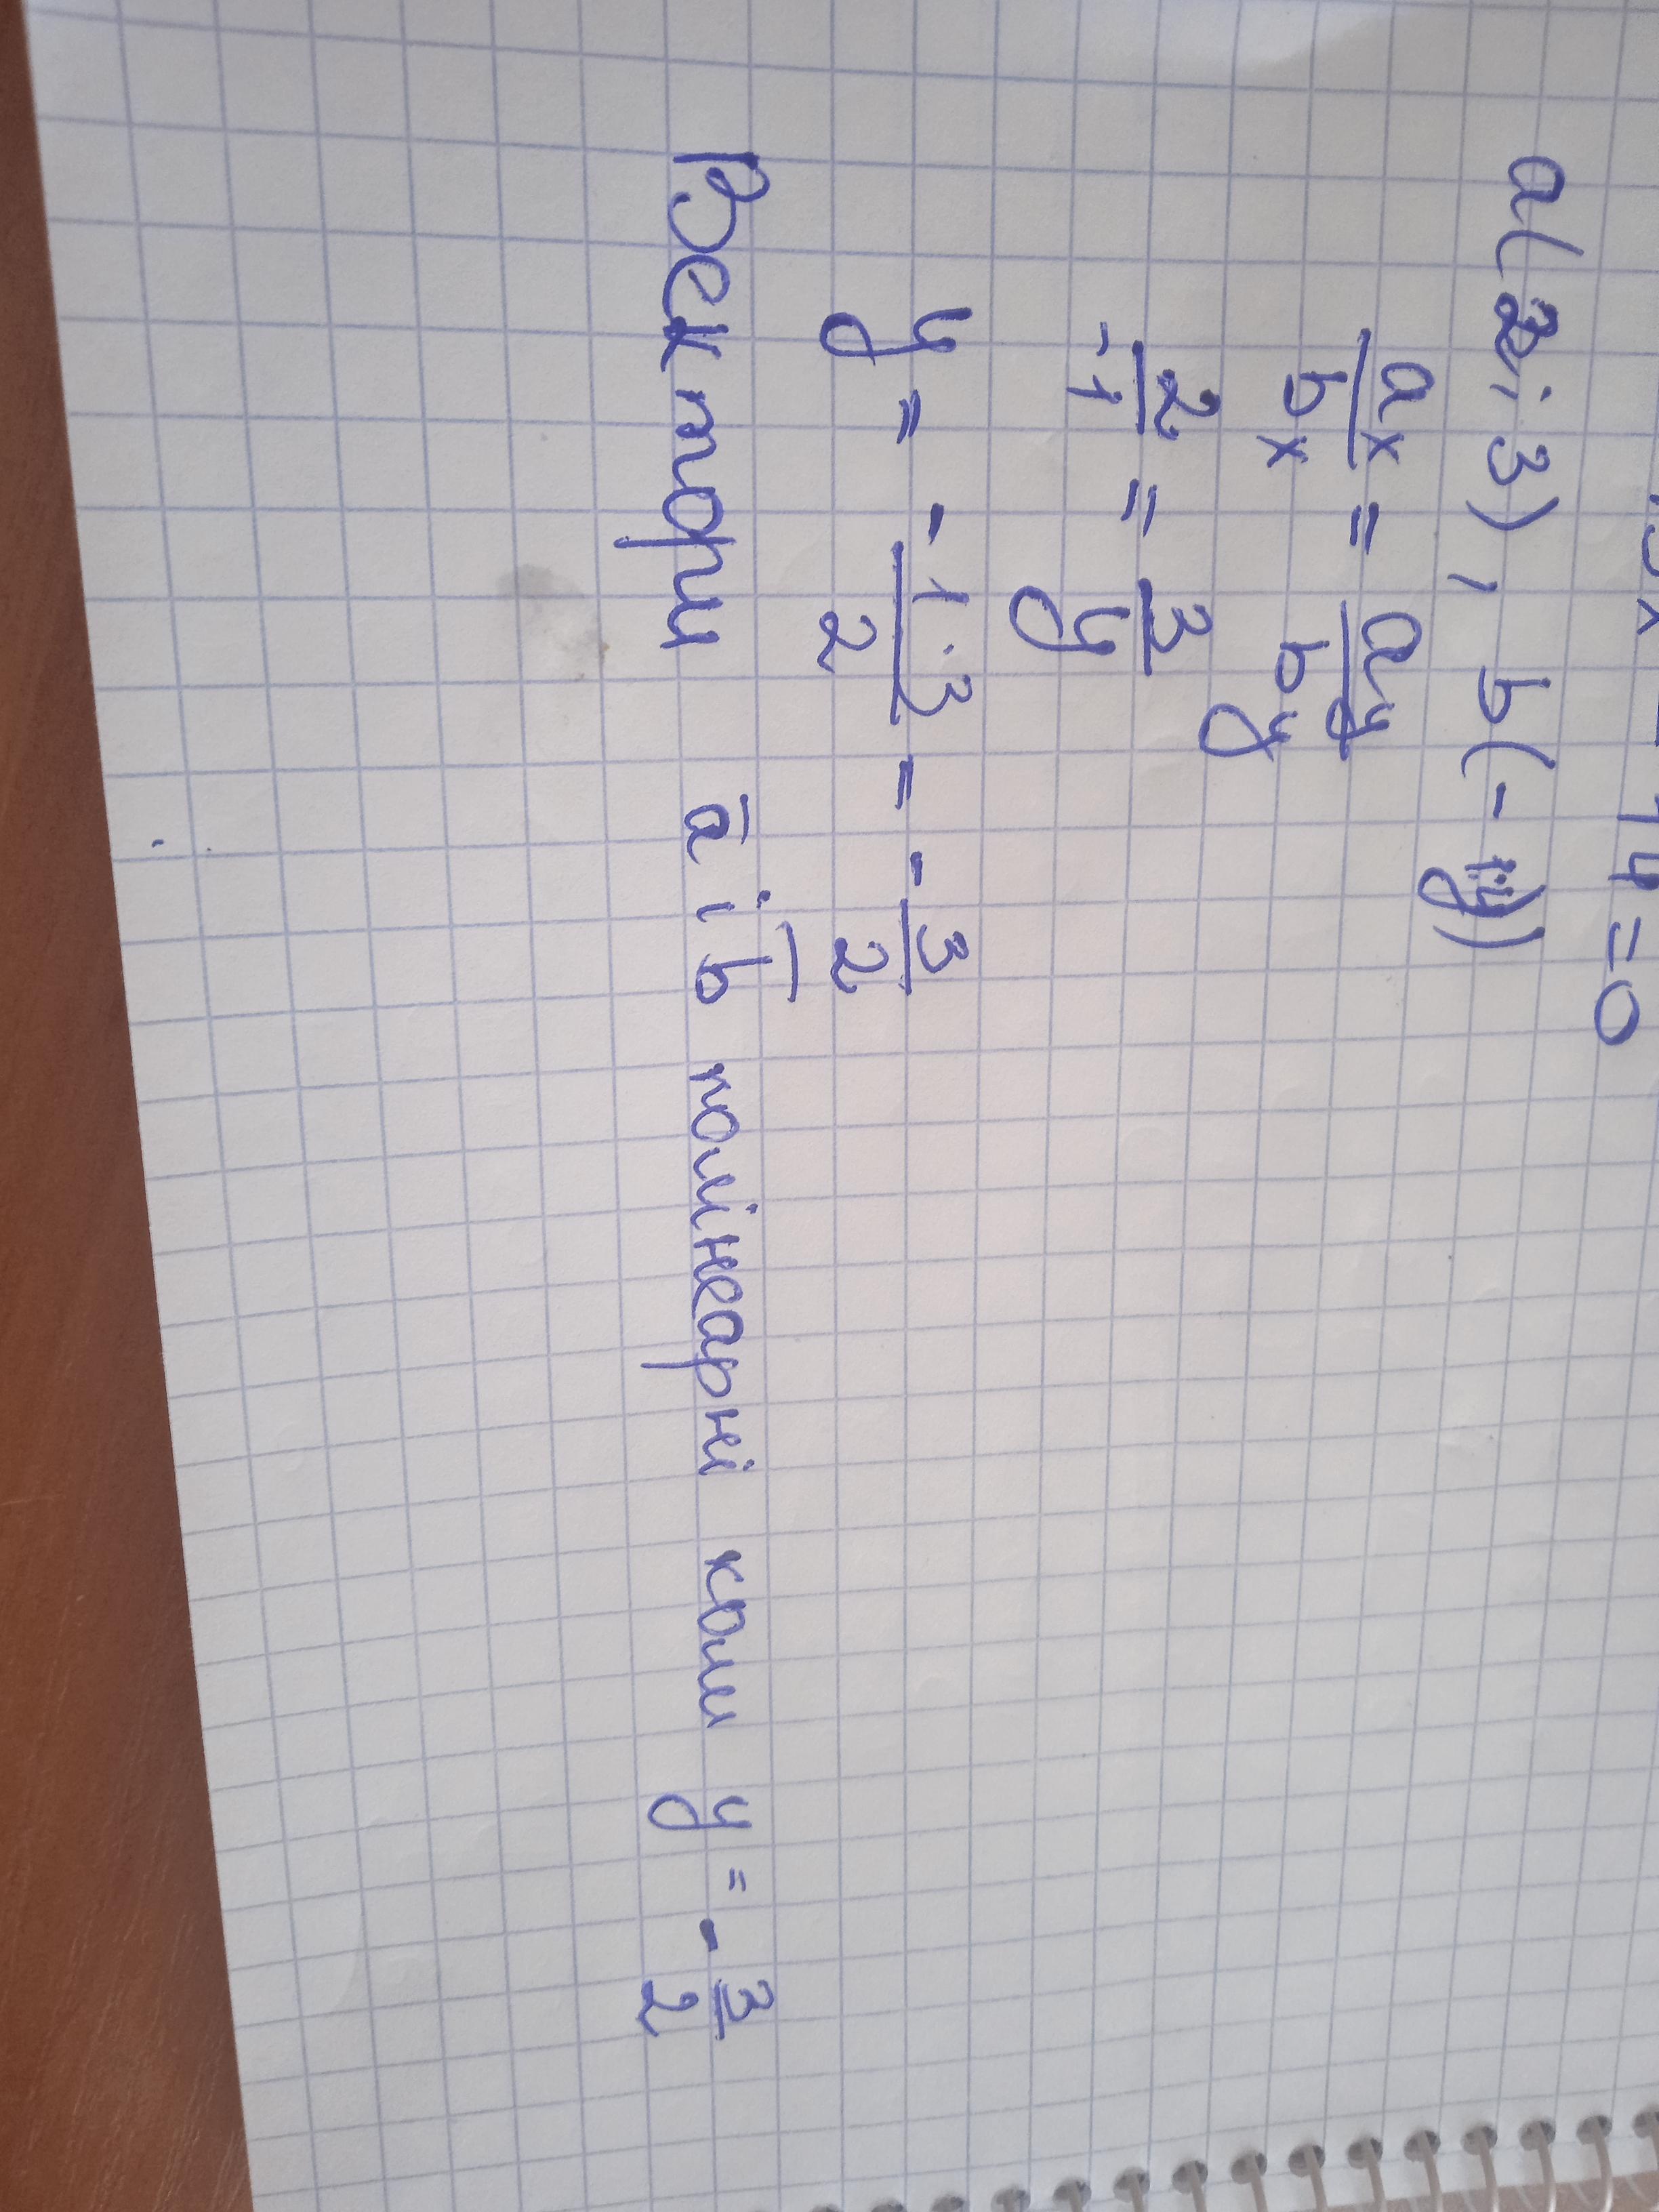 14 = 0
a(2; 3), b(-1; y)
ax/bx = ay/by
2/-1 = 3/y
y = -1·3/2 = -3/2
Вектори a̅ і b̅ колінеарні коли y = -3/2